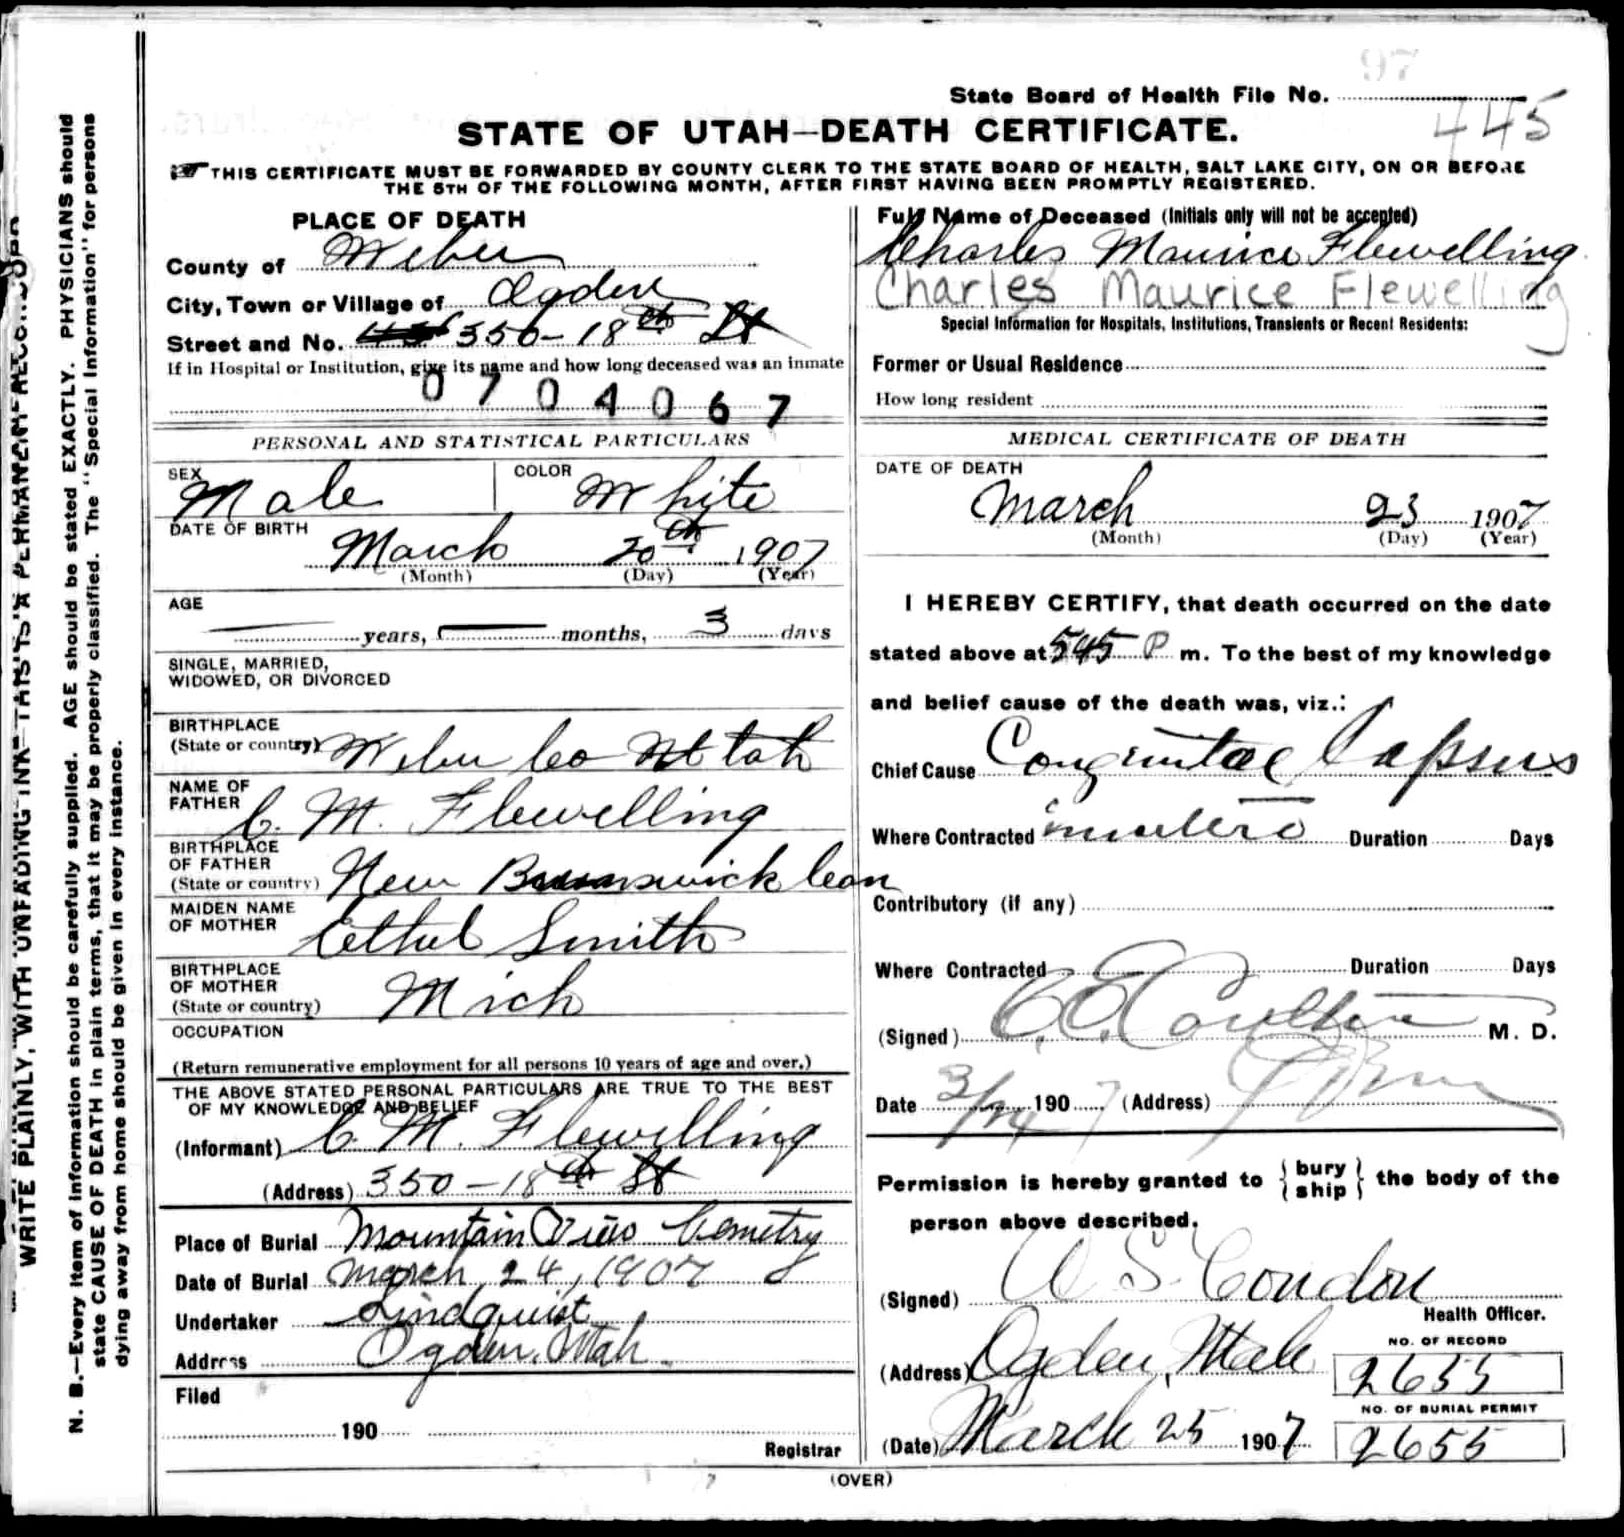 97
State Board of Health File No.
445
STATE OF UTAH—DEATH CERTIFICATE.
THIS CERTIFICATE MUST BE FORWARDED BY COUNTY CLERK TO THE STATE BOARD OF HEALTH, SALT LAKE CITY, ON OR BEFORE
THE 5TH OF THE FOLLOWING MONTH, AFTER FIRST HAVING BEEN PROMPTLY REGISTERED.
WRITE PLAINLY, WITH UNFADING INK—THIS IS A PERMANENT RECORD
N. B.—Every item of information should be carefully supplied. AGE should be stated EXACTLY. PHYSICIANS should
state CAUSE OF DEATH in plain terms, that it may be properly classified. The "Special Information" for persons
dying away from home should be given in every instance.
PLACE OF DEATH
County of Weber
City, Town or Village of Ogden
Street and No. 350-18th St
If in Hospital or Institution, give its name and how long deceased was an inmate
0704067
PERSONAL AND STATISTICAL PARTICULARS
SEX Male
COLOR White
DATE OF BIRTH
March 20th 1907
(Month) (Day) (Year)
AGE
years, months, 3 days
SINGLE, MARRIED,
WIDOWED, OR DIVORCED
BIRTHPLACE
(State or country) Weber Co Utah
NAME OF
FATHER C. M. Flewelling
BIRTHPLACE
OF FATHER
(State or country) New Brunswick Can
MAIDEN NAME
OF MOTHER Ethel Smith
BIRTHPLACE
OF MOTHER
(State or country) Mich
OCCUPATION
(Return remunerative employment for all persons 10 years of age and over.)
THE ABOVE STATED PERSONAL PARTICULARS ARE TRUE TO THE BEST
OF MY KNOWLEDGE AND BELIEF
(Informant) C. M. Flewelling
(Address) 350-18th St
Place of Burial Mountain View Cemetry
Date of Burial March, 24, 1907
Undertaker Lindquist
Address Ogden, Utah.
Filed
190
Registrar
Full Name of Deceased (Initials only will not be accepted)
Charles Maurice Flewelling
Charles Maurice Flewelling
Special Information for Hospitals, Institutions, Transients or Recent Residents:
Former or Usual Residence
How long resident
MEDICAL CERTIFICATE OF DEATH
DATE OF DEATH
March 23 1907
(Month) (Day) (Year)
I HEREBY CERTIFY, that death occurred on the date
stated above at 545 P m. To the best of my knowledge
and belief cause of the death was, viz.:
Chief Cause Congenital Lapsus
Where Contracted in utero Duration Days
Contributory (if any)
Where Contracted Duration Days
(Signed) C. E. Coulter M. D.
Date 3/24 1907 (Address)
Permission is hereby granted to {bury ship} the body of the
person above described.
(Signed) A S. Condon
Health Officer.
(Address) Ogden, Utah
NO. OF RECORD
2655
NO. OF BURIAL PERMIT
(Date) March 25 1907
2655
(OVER)